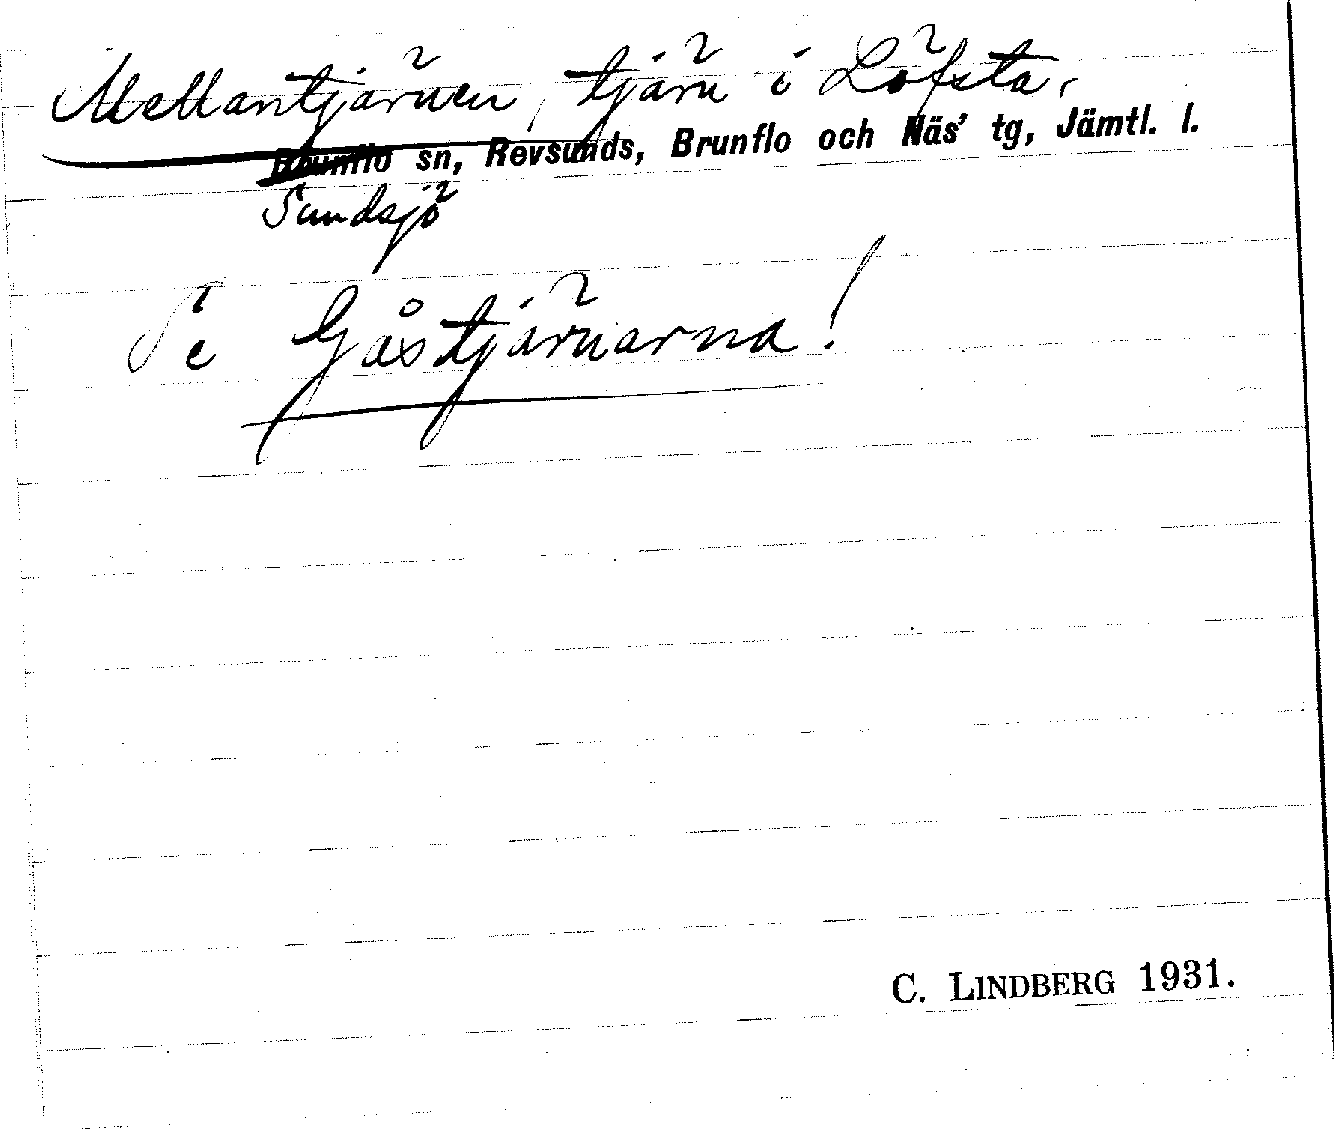 Mellantjärnen, tjärn i Löfsta,
Brunflo sn, Revsunds, Brunflo och Näs' tg, Jämtl. l.
Sundsjö
Se Gåstjärnarna!
C. LINDBERG 1931.